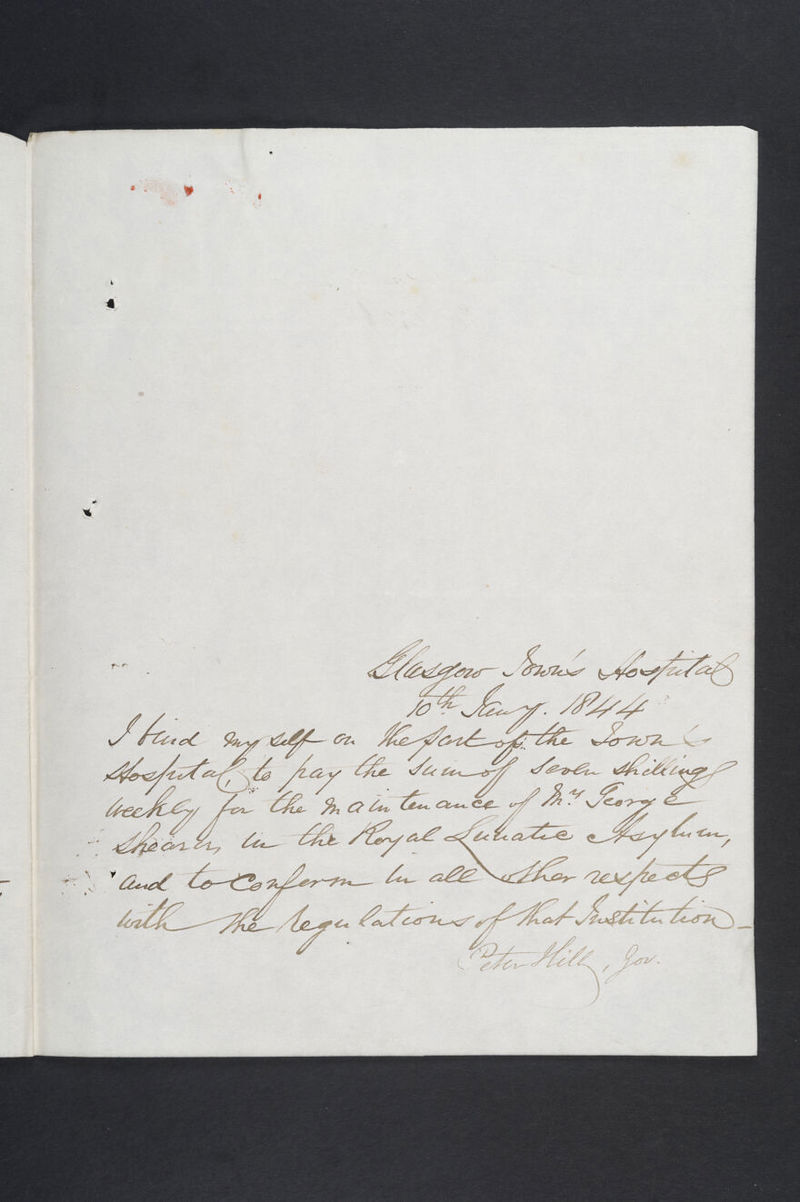 Glasgow Town's Hospital
10th Jany. 1844
I bind myself on the part of the Town's
Hospital, to pay the sum of seven shillings
weekly for the maintenance of Mr George
Shearer, in the Royal Lunatic Asylum,
and to conform in all other respects
with the regulations of that Institution –
Peter Hill, Gov.